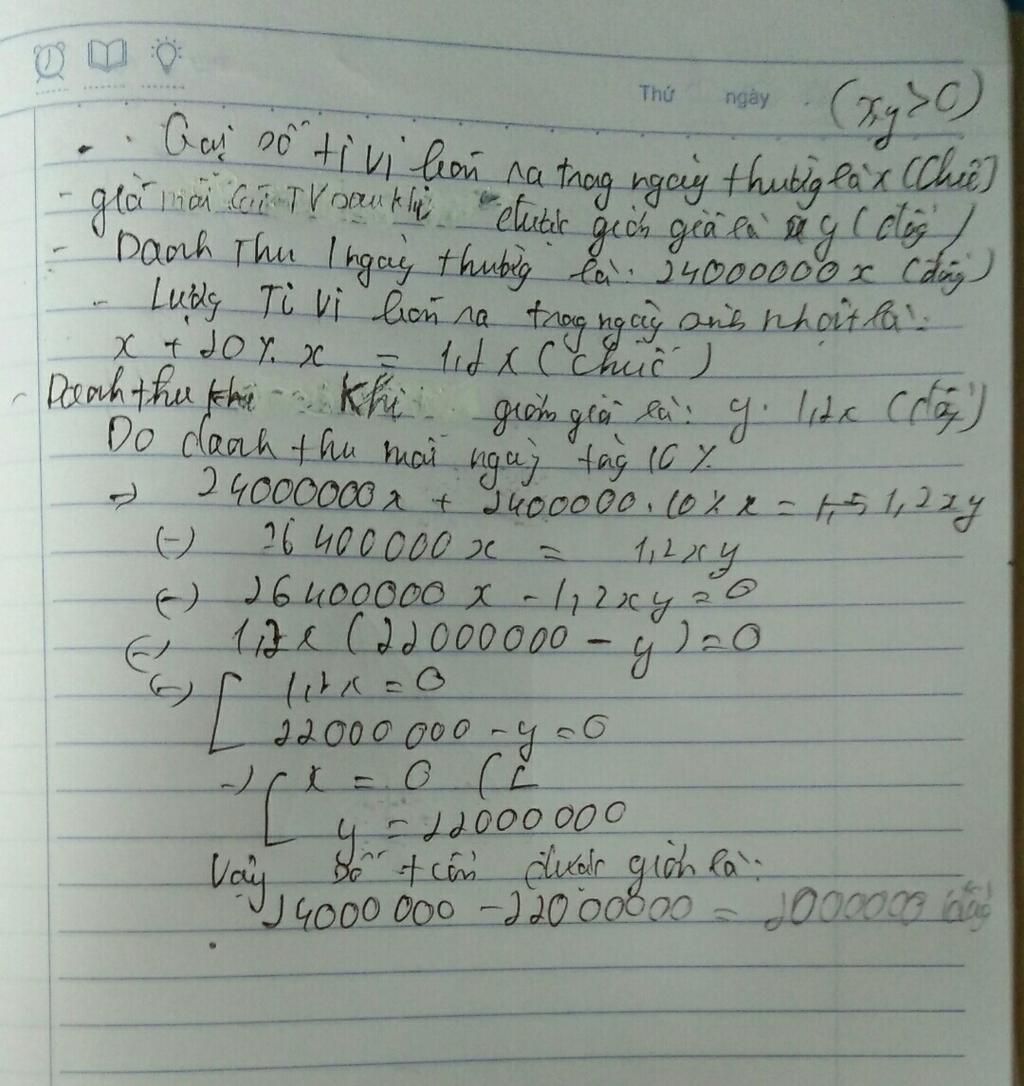 Thứ ngày (x,y>0)
Gọi số ti vi bán ra trong ngày thường là x (Chiếc)
- giá mỗi cái TV sau khi được giảm giá là y (đồng)
- Doanh Thu 1 ngày thường là: 24000000x (đồng)
- Lượng Ti Vi bán ra trong ngày là:
x + 20% x = 1,2x (chiếc)
- Doanh thu khi giảm giá là: y. 1,2x (đồng)
Do doanh thu mỗi ngày tăng 10%
=> 24000000x + 2400000.10% x = 1,2xy
(-) 26400000x = 1,2xy
(-) 26400000x - 1,2xy = 0
(-) 1,2x (22000000 - y) = 0
(-) [ 1,2x = 0
22000000 - y = 0
-) [ x = 0 (L
y = 22000000
Vậy số tiền được giảm là:
24000000 - 22000000 = 2000000 (đồng)